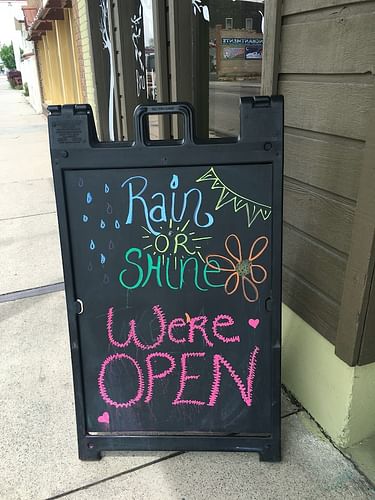 Rain
OR
SHINE
We're
OPEN